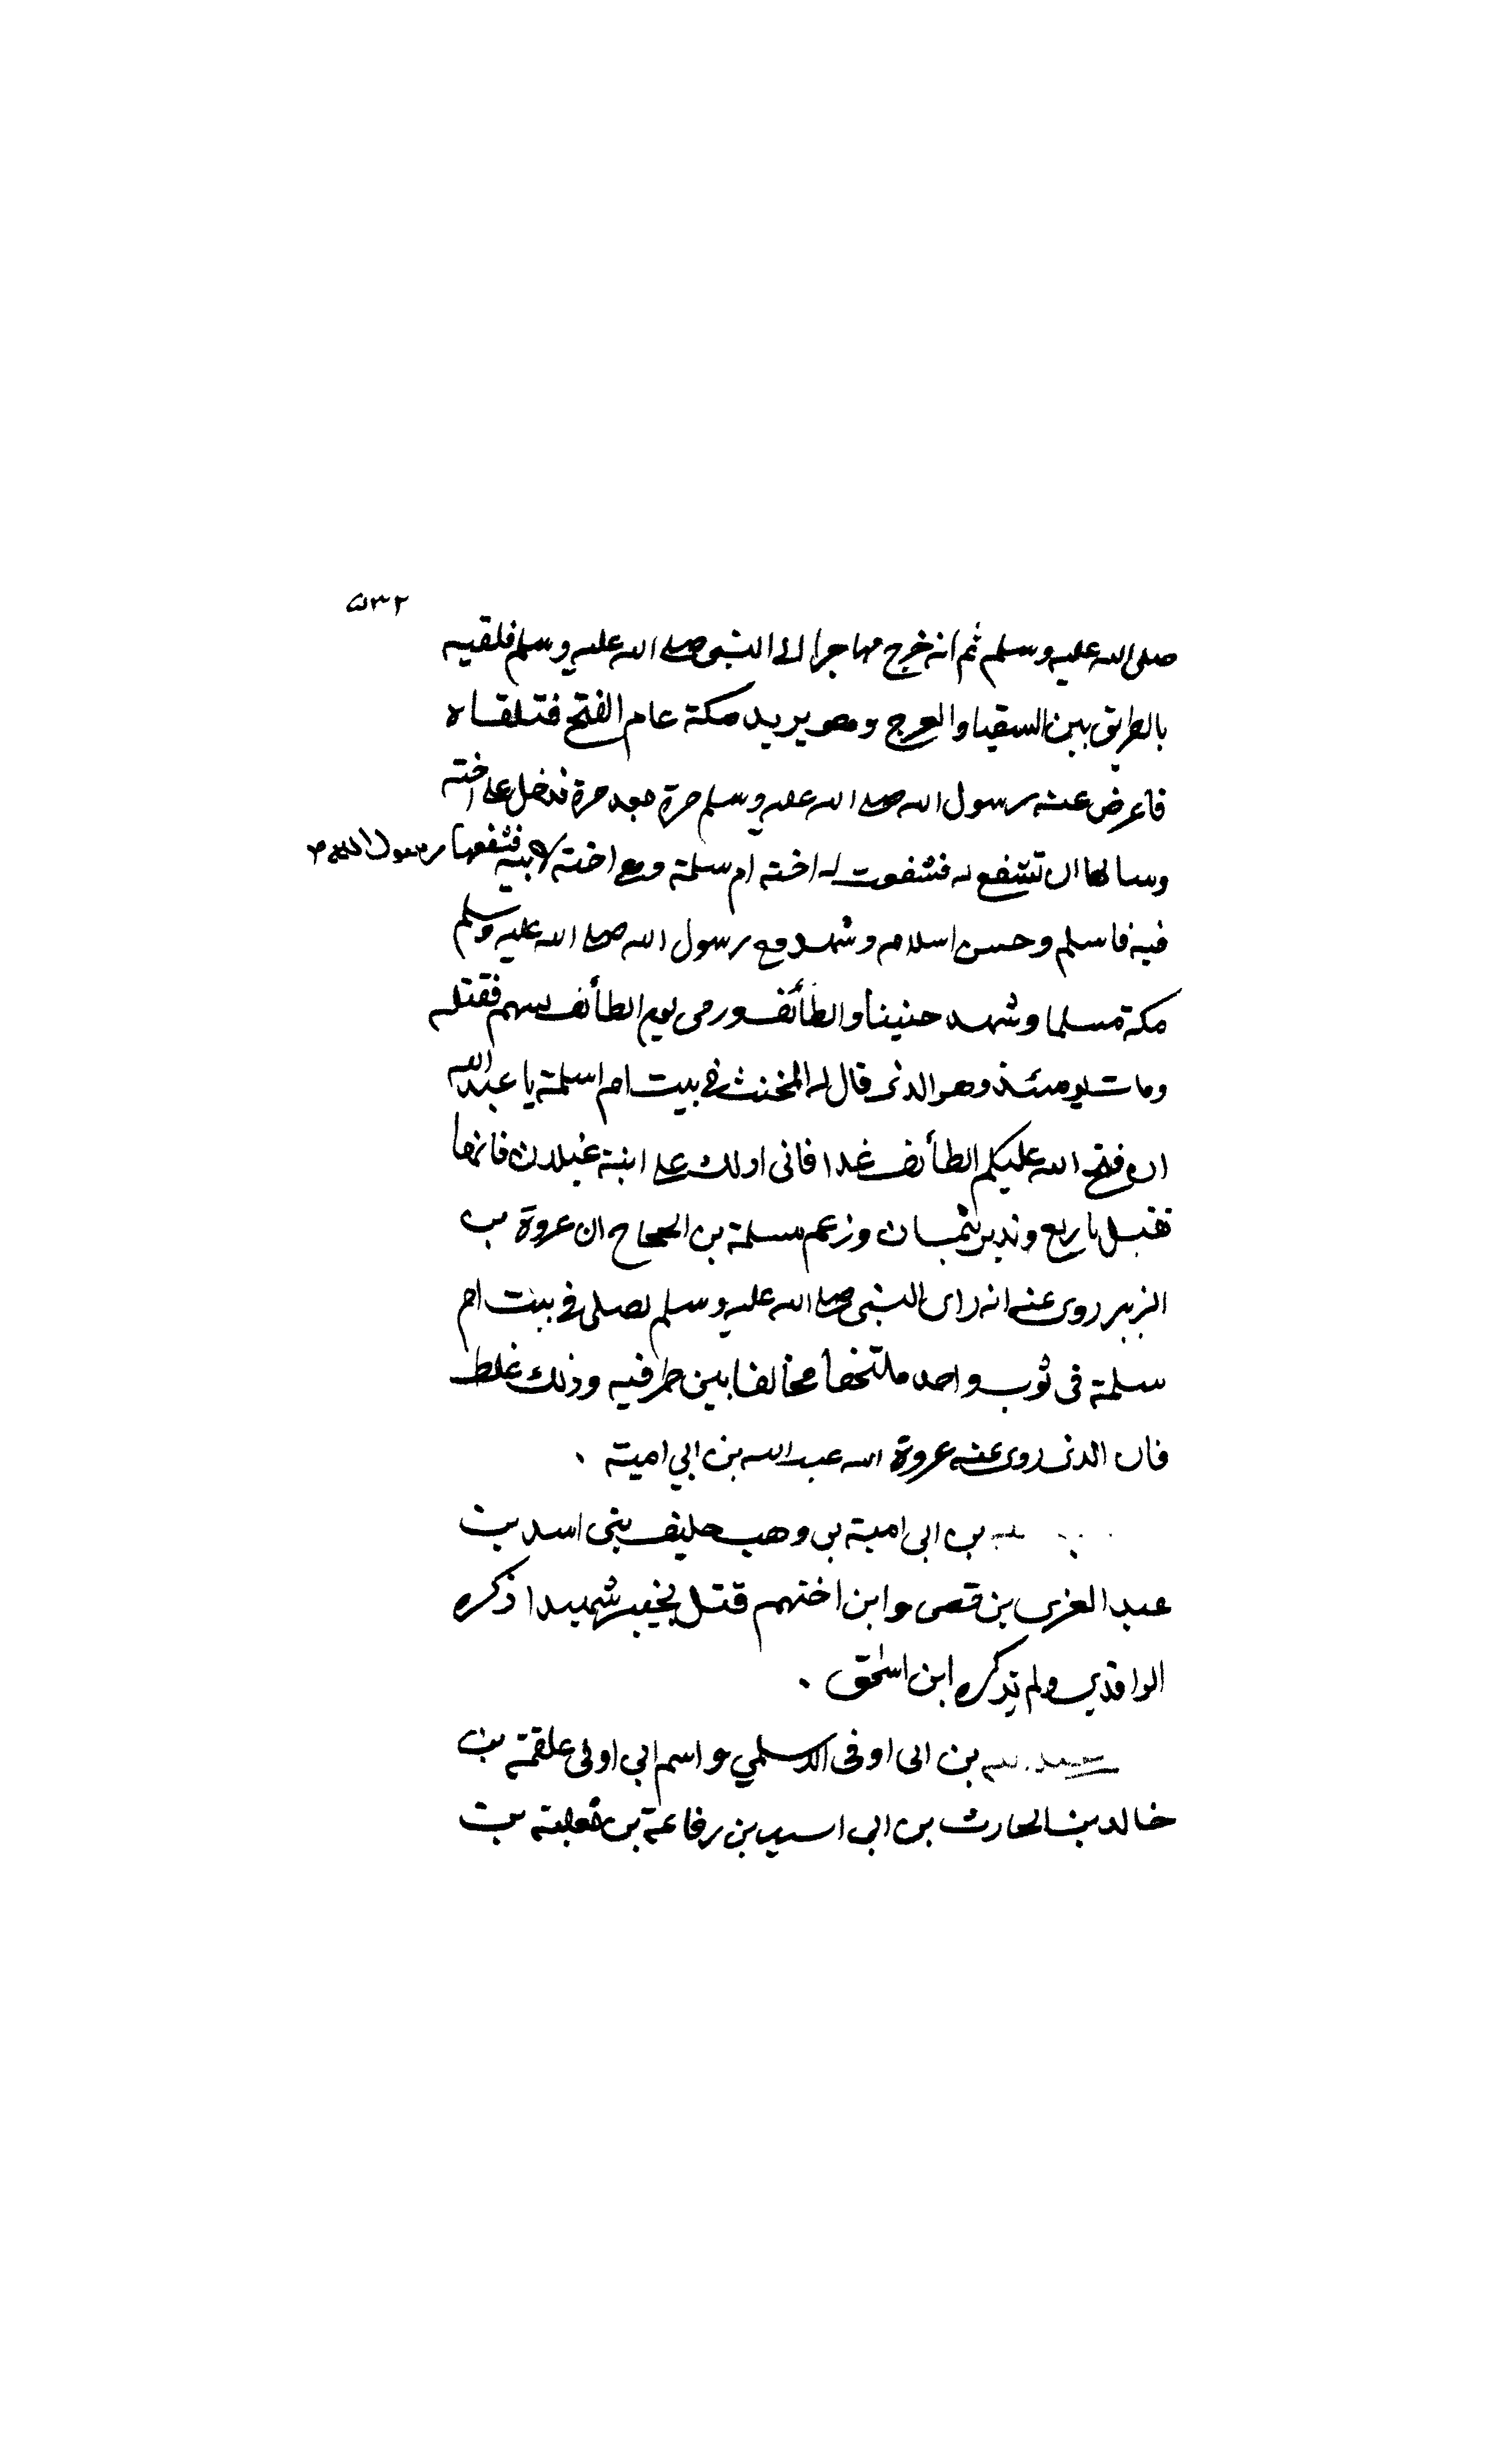 ٥٣٢
صلى الله عليه وسلم ثم انه خرج مهاجرا الى النبى صلى الله عليه وسلم فلقيه
بالطريق بين السقيا والعرج وهو يريد مكة عام الفتح فتلقاه
فاعرض عنه رسول الله صلى الله عليه وسلم مرة بعد مرة فدخل على اخته
وسالها ان تشفع له فشفعت له اخته ام سلمة وهى اخته لابيه فشفعها رسول الله ص
فيه فاسلم وحسن اسلامه وشهد مع رسول الله صلى الله عليه وسلم
مكة مسلما وشهد حنينا والطائف ورمى يوم الطائف بسهم فقتله
ومات يومئذ وهو الذى قال له المخنث فى بيت ام سلمة يا عبد الله
ان فتح الله عليكم الطائف غدا فانى ادلك على ابنة غيلان فانها
تقبل باربع وتدبر بثمان وزعم مسلمة بن الحجاح ان عروة بن
الزبير روى عنه انه راى النبى صلى الله عليه وسلم يصلى فى بيت ام
سلمة فى ثوب واحد ملتحفا مخالفا بين طرفيه وذلك غلط
فان الذى روى عنه عروة الله عبد الله بن ابي امية .
بن ابى امية بن وهب حليف بنى اسد بن
عبد العزى بن قصى وابن اختهم قتل بخيبر شهيدا ذكره
الواقدي ولم يذكره ابن اسحق .
عبد الله بن ابى اوفى الاسلمي واسم ابي اوفى علقمة بن
خالد بن الحارث بن ابى اسيد بن رفاعة بن ثعلبة بن